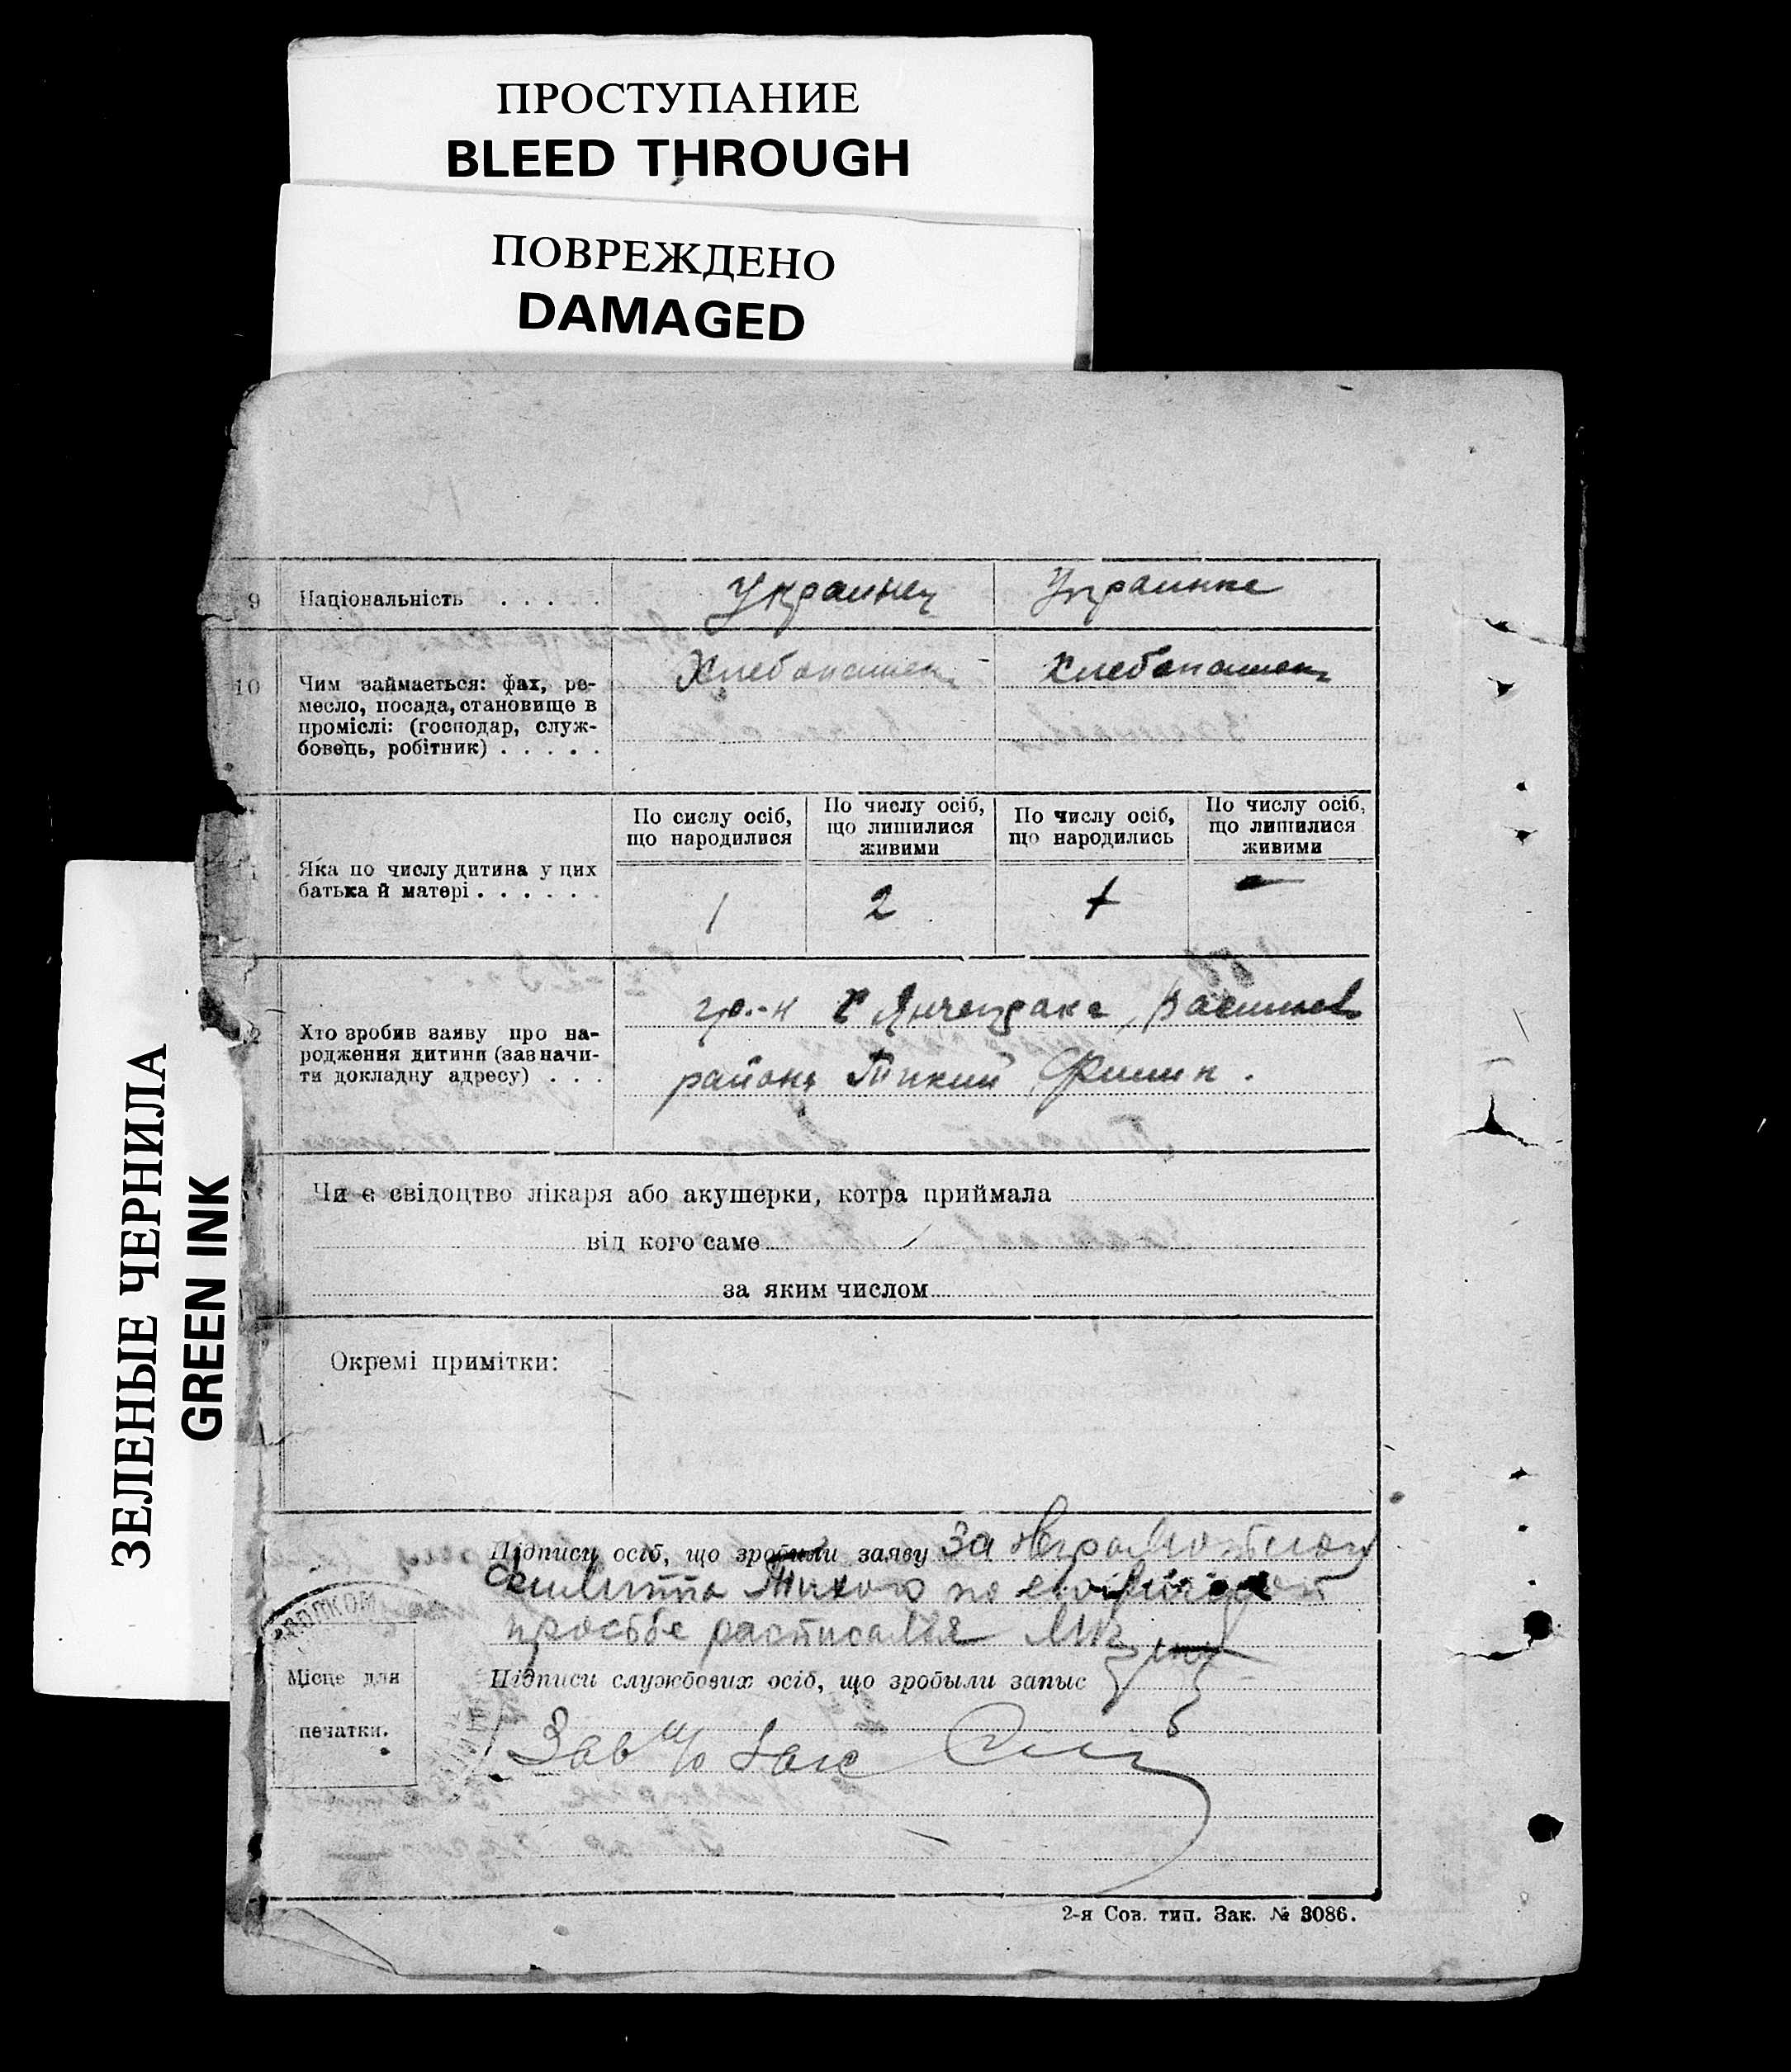 ПРОСТУПАНИЕ
BLEED THROUGH
ПОВРЕЖДЕНО
DAMAGED
ЗЕЛЕНЫЕ ЧЕРНИЛА
GREEN INK
9 Національність . . . . Украинец Украинка
10 Чим займається: фах, ре-
месло, посада, становище в
проміслі: (господар, служ-
бовець, робітник) . . . . .
Хлебопашец Хлебопашец
По сислу осіб,
що народилися
По числу осіб,
що лишилися
живими
По числу осіб,
що народились
По числу осіб,
що лишилися
живими
Яка по числу дитина у цих
батька й матері . . . . . .
1 2 + —
2 Хто зробив заяву про на-
родження дитини (зазначи-
ти докладну адресу) . . .
гр.-н с Янчекрака, Василев
района Тикий Филип .
Чи є свідоцтво лікаря або акушерки, котра приймала
від кого саме
за яким числом
Окремі примітки:
Підписи осіб, що зробили заяву За
по
просьбе расписался
Підписи службових осіб, що зробыли запыс
Місце для
печатки.
Зав
2-я Сов. тип. Зак. № 3086.